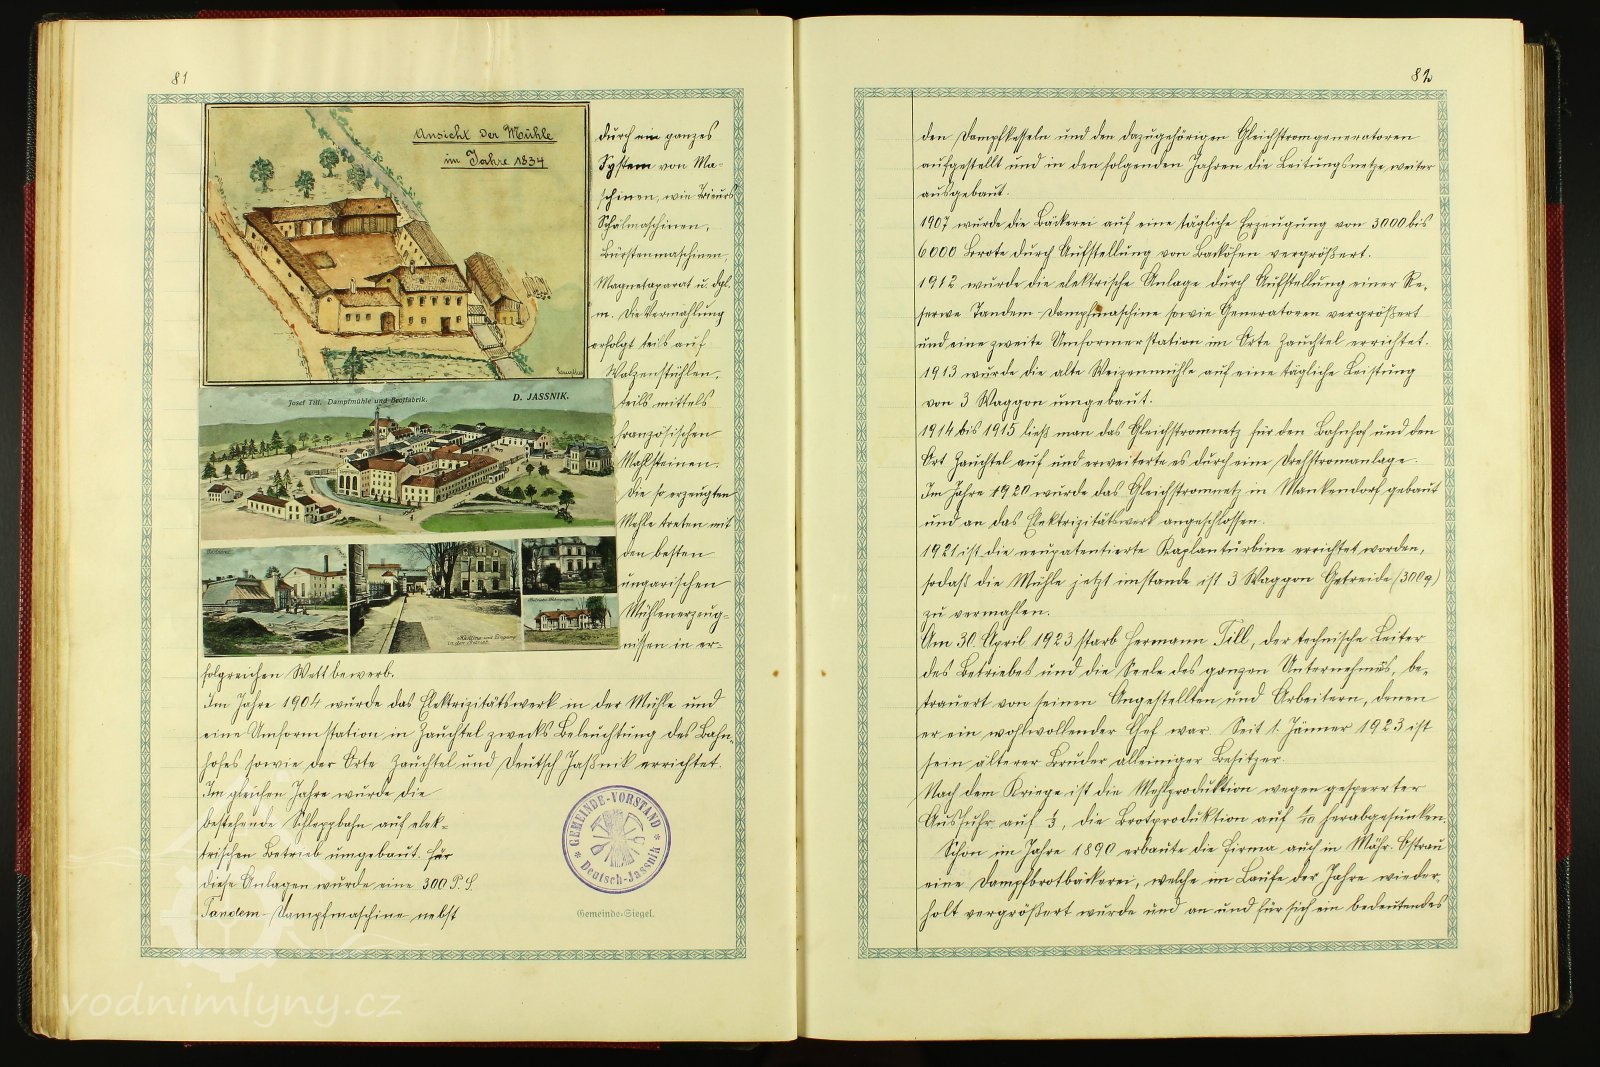 81
Ansicht der Mühle
im Jahre 1834
durch ein ganzes
System von Ma-
schinen, wie Trieurs
Schälmaschinen,
Bürstenmaschinen,
Magnetaparat u. dgl.
m. Die Vermahlung
erfolgt teils auf
Walzenstühlen,
teils mittels
französischen
Mahlsteinen.
Die so erzeugten
Mehle treten mit
den besten
ungarischen
Mühlenerzeug-
nissen in er-
Josef Till. Dampfmühle und Brotfabrik.
D. JASSNIK.
folgreichen Wettbewerb.
Im Jahre 1904 wurde das Elektrizitätswerk in der Mühle und
eine Umformstation in Zauchtel zwecks Beleuchtung des Bahn-
hofes sowie der Orte Zauchtel und Deutsch Jaßnik errichtet.
Im gleichen Jahre wurde die
bestehende Schleppbahn auf elek-
trischen Betrieb umgebaut. Für
diese Anlagen wurde eine 300 P.S.
Tandem-Dampfmaschine nebst
GEMEINDE-VORSTAND
Deutsch-Jassnik
Gemeinde-Siegel.
vodnimlyny.cz
82
den Dampfkesseln und den dazugehörigen Gleichstromgeneratoren
aufgestellt und in den folgenden Jahren die Leitungsnetze weiter
ausgebaut.
1907 wurde die Bäckerei auf eine tägliche Erzeugung von 3000 bis
6000 Brote durch Aufstellung von Backöfen vergrößert.
1912 wurde die elektrische Anlage durch Aufstellung einer Re-
serve Tandem-Dampfmaschine sowie Generatoren vergrößert
und eine zweite Umformerstation im Orte Zauchtel errichtet.
1913 wurde die alte Weizenmühle auf eine tägliche Leistung
von 3 Waggon umgebaut.
1914 bis 1915 ließ man das Gleichstromnetz für den Bahnhof und den
Ort Zauchtel auf und erweiterte es durch eine Drehstromanlage.
Im Jahre 1920 wurde das Gleichstromnetz in Mankendorf gebaut
und an das Elektrizitätswerk angeschlossen.
1921 ist die neupatentierte Kaplanturbine errichtet worden,
sodaß die Mühle jetzt imstande ist 3 Waggon Getreide (300q)
zu vermahlen.
Am 30. April 1923 starb Hermann Till, der technische Leiter
des Betriebes und die Seele des ganzen Unternehmens, be-
trauert von seinen Angestellten und Arbeitern, denen
er ein wohlwollender Chef war. Seit 1. Jänner 1923 ist
sein älterer Bruder alleiniger Besitzer.
Nach dem Kriege ist die Mehlproduktion wegen gesperrter
Ausfuhr auf 1/3, die Brotproduktion auf 1/10 herabgesunken.
Schon im Jahre 1890 erbaute die Firma auch in Mähr. Ostrau
eine Dampfbrotbäckerei, welche im Laufe der Jahre wieder-
holt vergrößert wurde und an und für sich ein bedeutendes